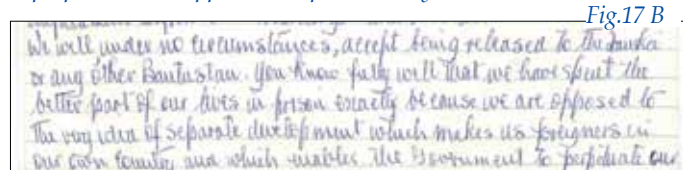 Fig.17 B
We will under no circumstances, accept being released to the Transkei
or any other Bantustan. You know fully well that we have spent the
better part of our lives in prison exactly because we are opposed to
the very idea of separate development which makes us foreigners in
our own country and which enables the Government to perpetuate our